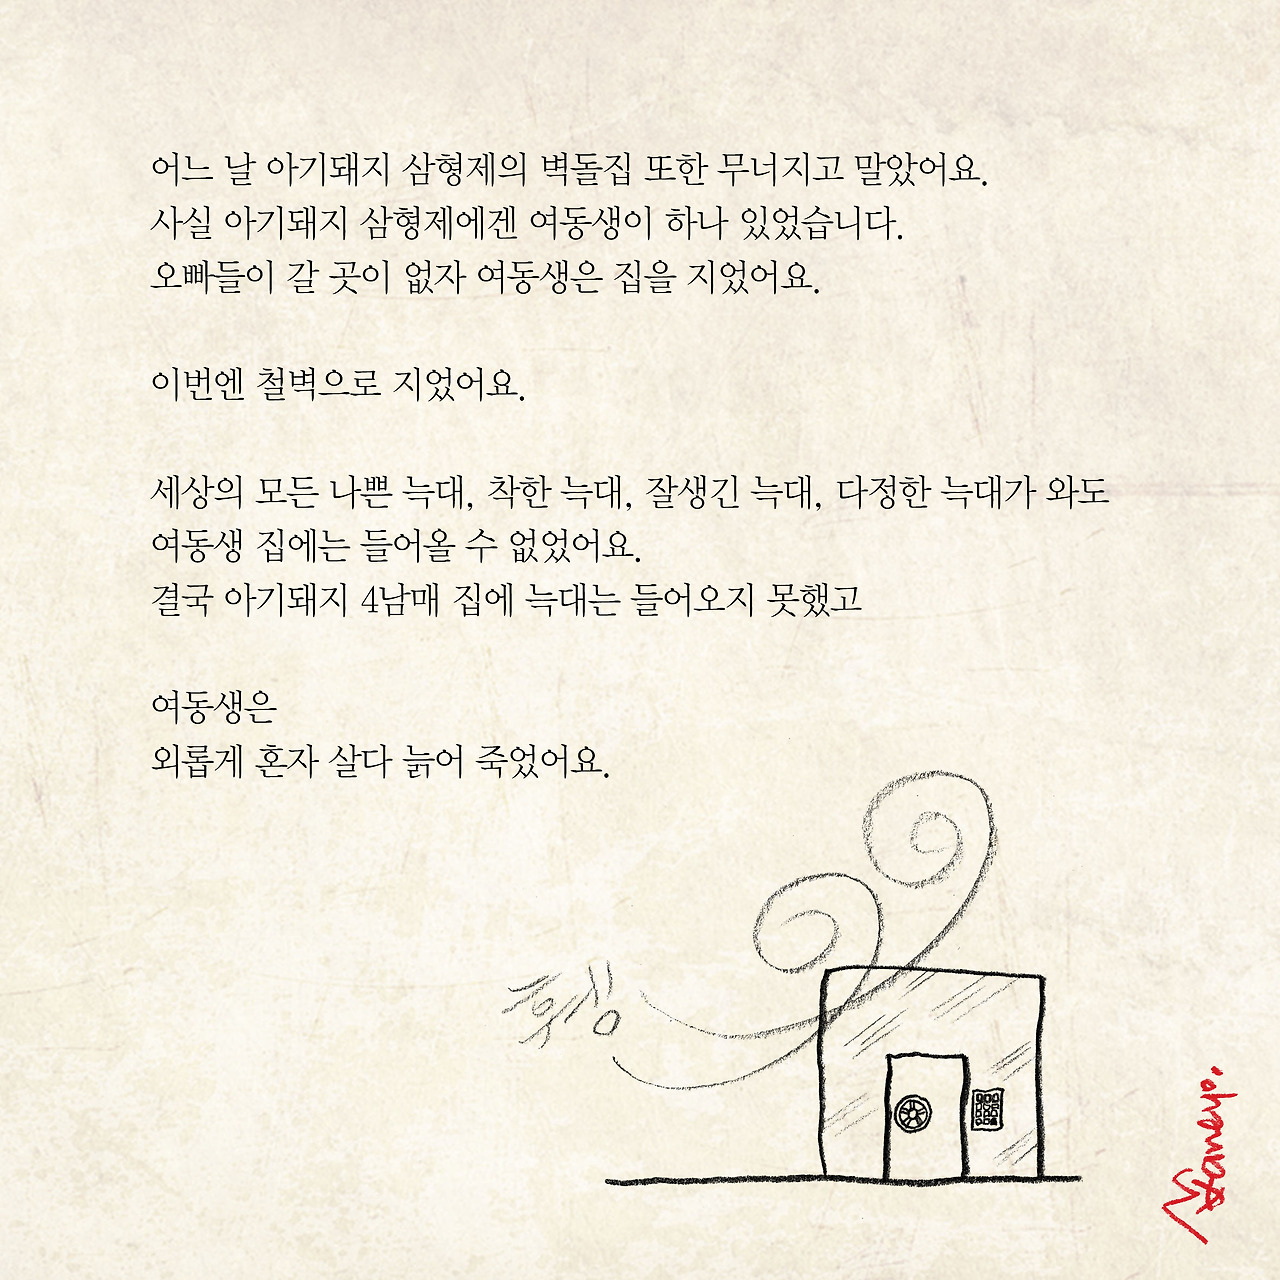 어느 날 아기돼지 삼형제의 벽돌집 또한 무너지고 말았어요.
사실 아기돼지 삼형제에겐 여동생이 하나 있었습니다.
오빠들이 갈 곳이 없자 여동생은 집을 지었어요.
이번엔 철벽으로 지었어요.
세상의 모든 나쁜 늑대, 착한 늑대, 잘생긴 늑대, 다정한 늑대가 와도
여동생 집에는 들어올 수 없었어요.
결국 아기돼지 4남매 집에 늑대는 들어오지 못했고
여동생은
외롭게 혼자 살다 늙어 죽었어요.
휘잉